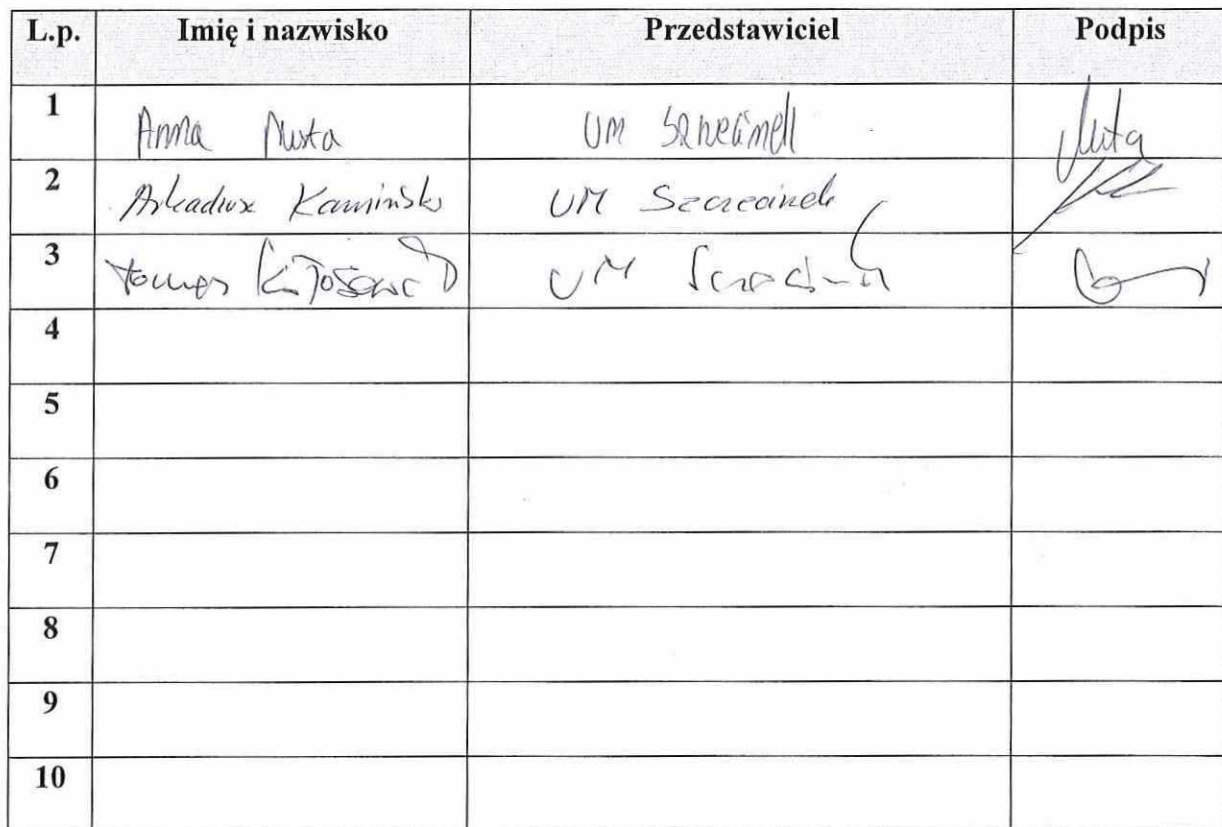 L.p. Imię i nazwisko Przedstawiciel Podpis
1 Anna UM Szczecinek
2 Arkadiusz Kamiński UM Szczecinek
3 Tomasz UM Szczecinek
4
5
6
7
8
9
10